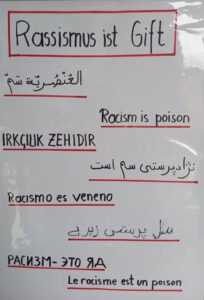 Rassismus ist Gift
العُنْصُريّة سَمّ
Racism is poison
IRKÇILIK ZEHIDIR
نژادپرستی سم است
Racismo es veneno
پرستی زہر ہے
РАСИЗМ - ЭТО ЯД
Le racisme est un poison